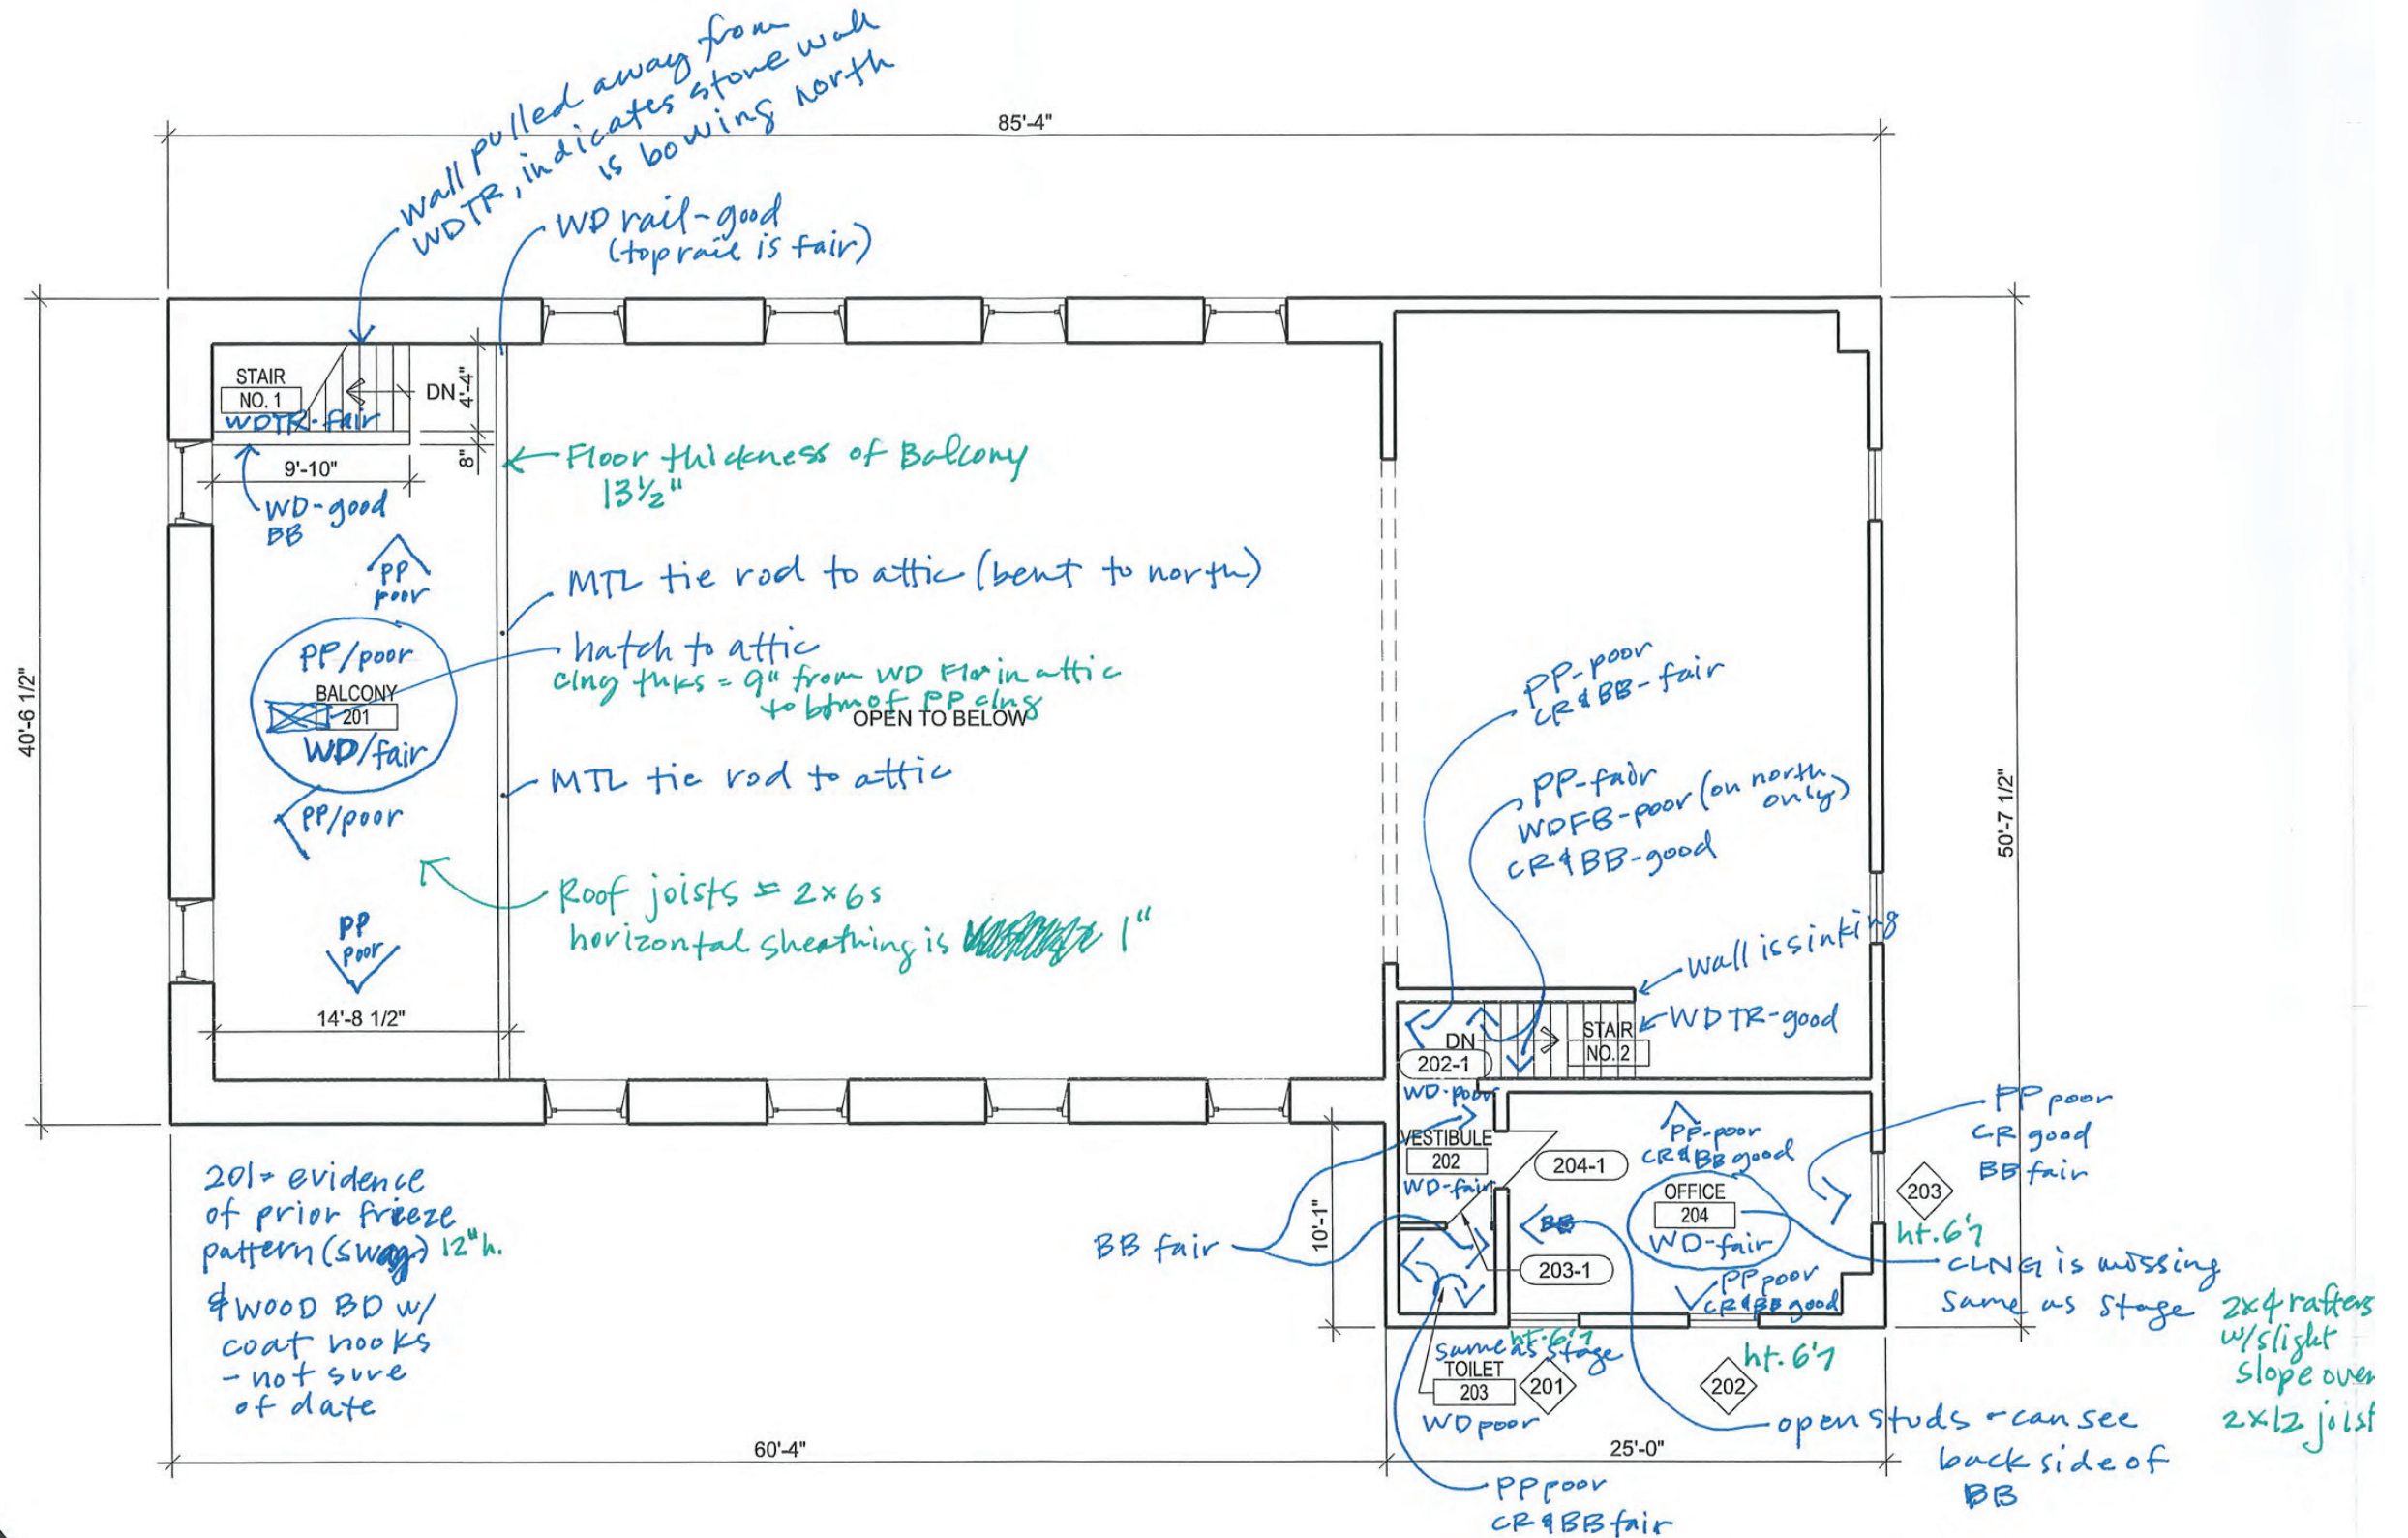 wall pulled away from
WDTR, indicates stone wall
is bowing north
85'-4"
WD rail - good
(top rail is fair)
STAIR
NO. 1
WDTR - fair
DN
4'-4"
8"
9'-10"
WD - good
BB
Floor thickness of Balcony
13 1/2"
PP
poor
MTL tie rod to attic (bent to north)
hatch to attic
clng thks = 9" from WD Flor in attic
to btm of PP clng
OPEN TO BELOW
PP/poor
BALCONY
201
WD/fair
PP/poor
MTL tie rod to attic
Roof joists = 2x6s
horizontal sheathing is 1"
PP
poor
14'-8 1/2"
40'-6 1/2"
50'-7 1/2"
PP-poor
CR & BB - fair
PP-fair
WDFB-poor (on north
only)
CR & BB-good
wall is sinking
WDTR-good
DN
STAIR
NO. 2
202-1
WD-poor
VESTIBULE
202
WD-fair
204-1
PP-poor
CR & BB good
OFFICE
204
WD-fair
BB
PP poor
CR & BB good
PP poor
CR good
BB fair
203
ht. 6'7
CLNG is missing
same as stage
2x4 rafters
w/slight
slope over
2x12 joist
BB fair
10'-1"
203-1
ht. 6'7
same as stage
TOILET
203
WD poor
201
202
ht. 6'7
open studs - can see
back side of
BB
PP poor
CR & BB fair
201 - evidence
of prior frieze
pattern (swag) 12"h.
& WOOD BD w/
coat hooks
- not sure
of date
60'-4"
25'-0"